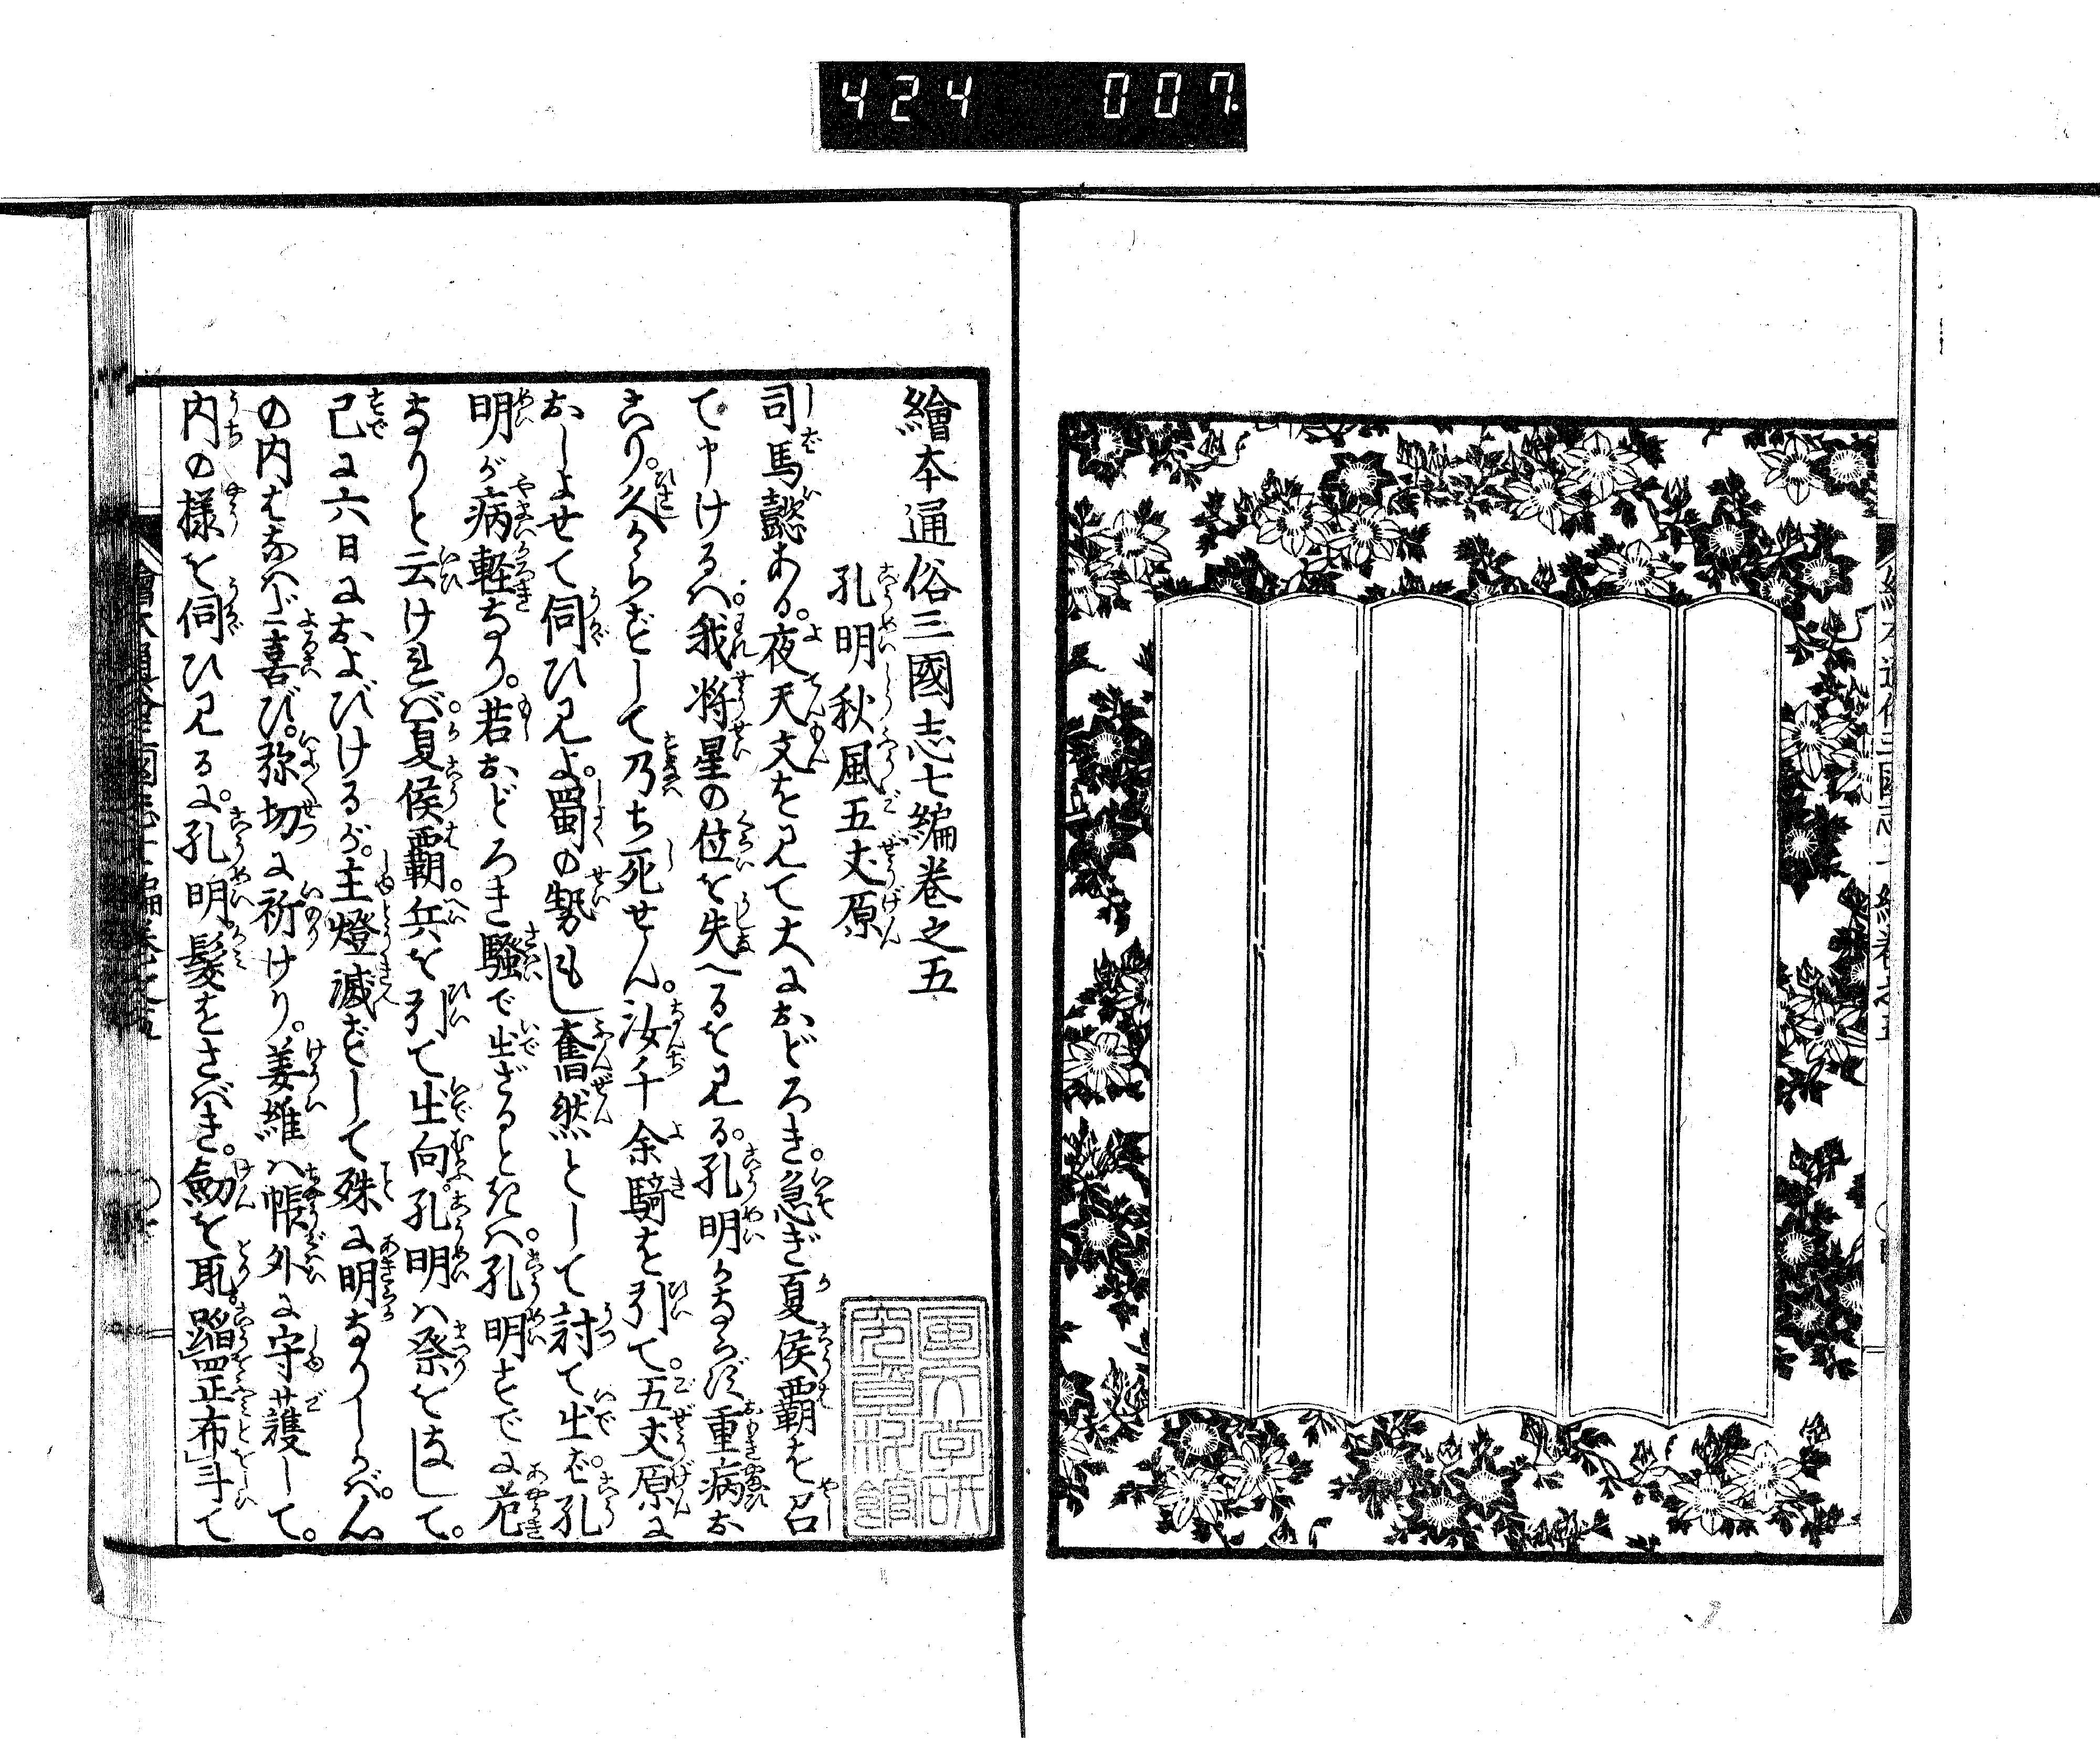 424 007
繪本通俗三國志七編巻之五
孔明秋風五丈原
司馬懿ある。夜天文を見て大におどろき。急ぎ夏侯覇を召
て申けるハ。我将星の位を失へるを見る。孔明かならず重病お
こり。久からずして乃ち死せん。汝千余騎を引て。五丈原に
おしよせて伺ひ見よ。蜀の勢もし奮然として討て出ば。孔
明が病軽なり。若おどろき騒で出ざるときハ。孔明すでに危
なりと云けれバ。夏侯覇。兵を引て出向。孔明ハ祭をなして。
已に六日におよびけるが。主燈滅ずして殊に明なりしかバ。心
の内はなハだ喜び。弥切に祈けり。姜維ハ帳外に守護して。
内の様を伺ひ見るに。孔明。髪をさばき。劔を取。踏罡布斗て